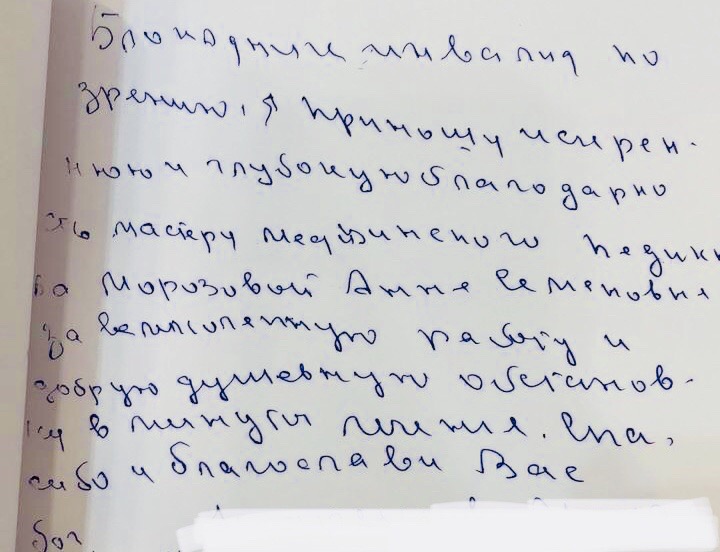 Блокадник инвалид по
зрению, я приношу искрен-
нюю и глубокую благодарно
сть мастеру медицинского педикю
ра Морозовой Анне Семеновне
за великолепную работу и
добрую душевную обстанов-
ку в минуты лечения. Спа,
сибо и благослави Вас
бог